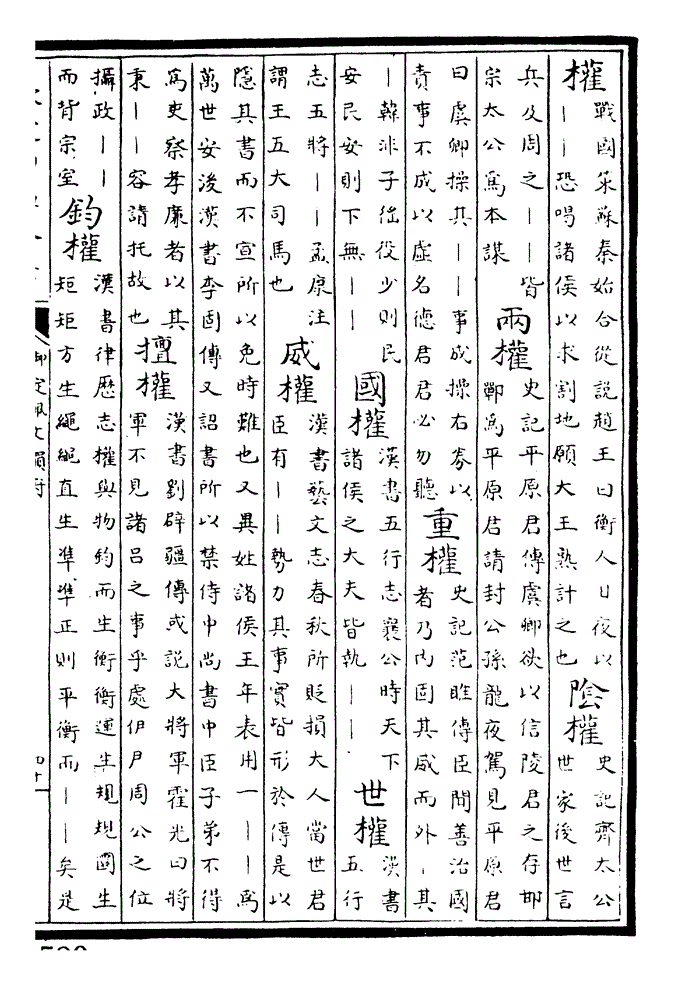 權
戰國策蘇秦始合從說趙王曰衡人日夜以
丨丨恐喝諸侯以求割地願大王熟計之也
陰權
史記齊太公
世家後世言
兵及周之丨丨皆
宗太公爲本謀
兩權
史記平原君傳虞卿欲以信陵君之存邯
鄲爲平原君請封公孫龍夜駕見平原君
曰虞卿操其丨丨事成操右券以
責事不成以虛名德君君必勿聽
重權
史記范睢傳臣聞善治國
者乃內固其威而外丨其
丨韓非子徭役少則民
安民安則下無丨丨
國權
漢書五行志襄公時天下
諸侯之大夫皆執丨丨
世權
漢書
五行
志五將丨丨孟康注
謂王五大司馬也
威權
漢書藝文志春秋所貶損大人當世君
臣有丨丨勢力其事實皆形於傳是以
隱其書而不宣所以免時難也又異姓諸侯王年表用一丨丨爲
萬世安後漢書李固傳又詔書所以禁侍中尚書中臣子弟不得
爲吏察孝廉者以其
秉丨丨容請托故也
擅權
漢書劉辟疆傳或說大將軍霍光曰將
軍不見諸呂之事乎處伊尹周公之位
攝政丨丨
而背宗室
鈞權
漢書律歷志權與物鈞而生衡衡運生規規圜生
矩矩方生繩繩直生準準正則平衡而丨丨矣是
御定佩文韻府
四十